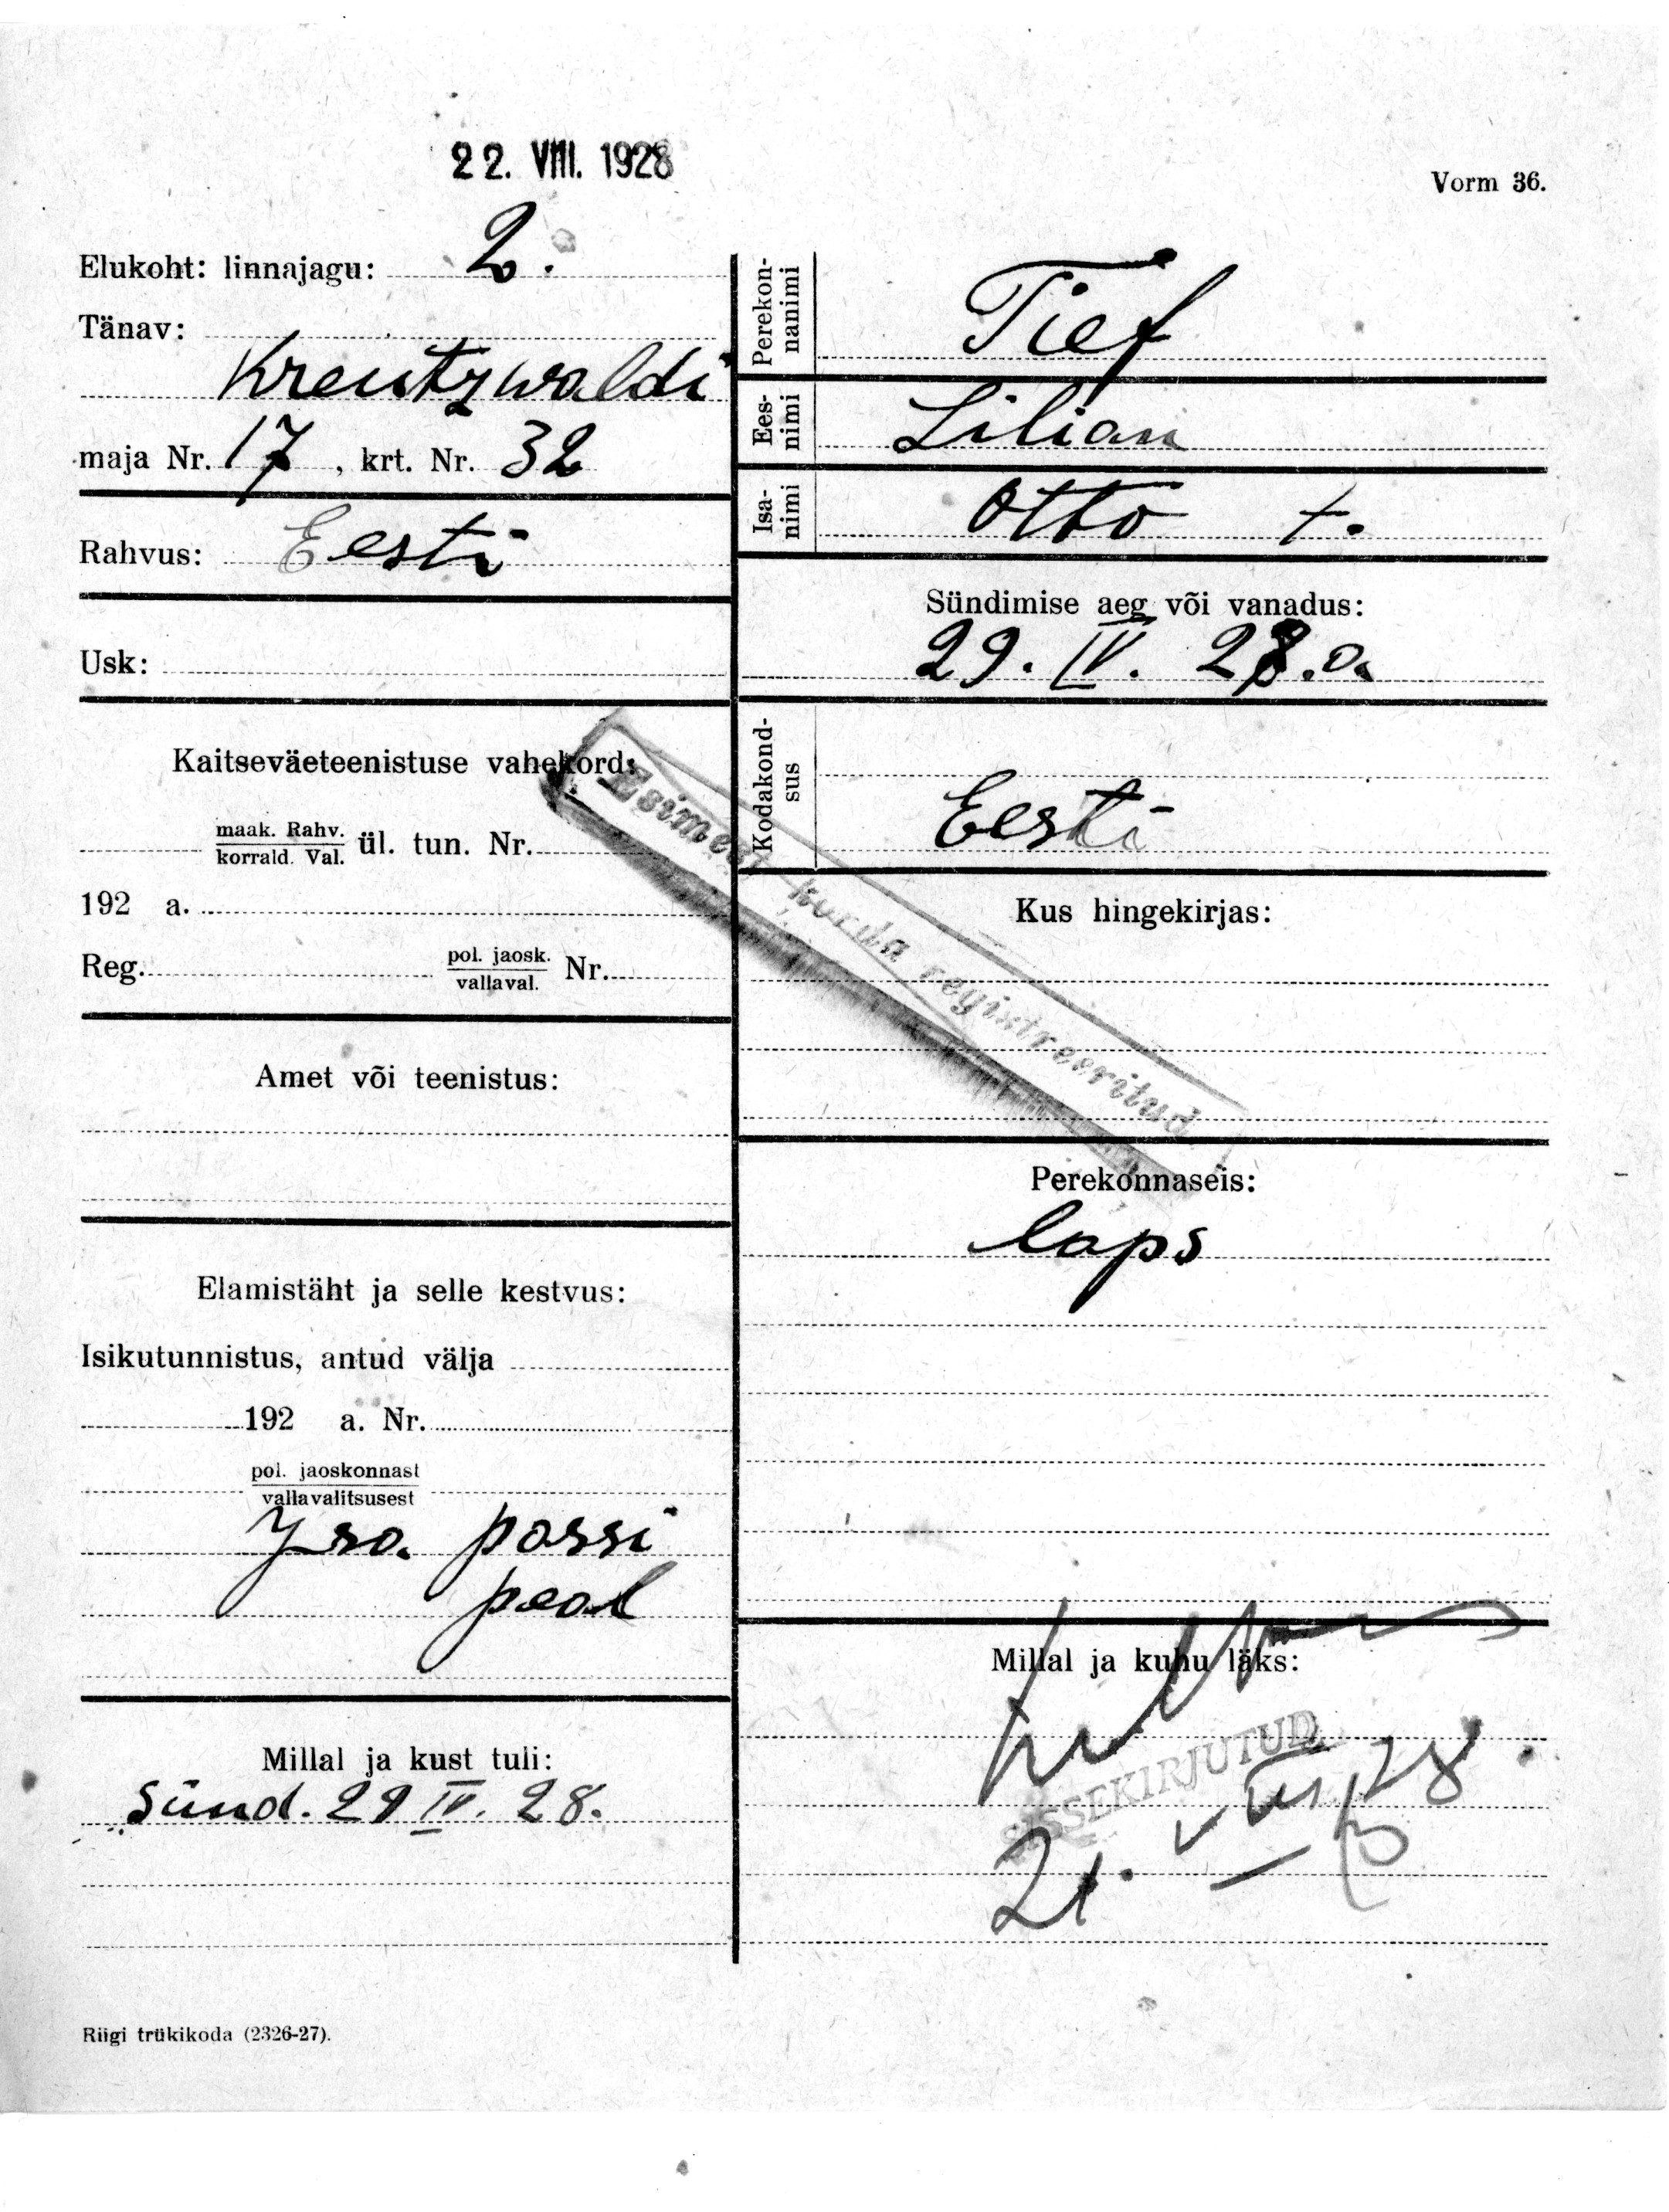 22. VIII. 1928
Vorm 36.
Elukoht: linnajagu: 2.
Tänav:
Kreutzwaldi
maja Nr. 17, krt. Nr. 32
Rahvus: Eesti
Usk:
Kaitseväeteenistuse vahekord:
maak. Rahv.
korrald. Val. ül. tun. Nr.
192 a.
Reg. pol. jaosk.
vallaval. Nr.
Amet või teenistus:
Elamistäht ja selle kestvus:
Isikutunnistus, antud välja
192 a. Nr.
pol. jaoskonnast
vallavalitsusest
passi
peal
Millal ja kust tuli:
Sünd. 29 IV. 28.
Perekon-
nanimi
Tief
Ees-
nimi
Lilian
Isa-
nimi
Otto t.
Sündimise aeg või vanadus:
29. IV. 28. a.
Kodakond-
sus
Eesti
Esimest korda registreeritud
Kus hingekirjas:
Perekonnaseis:
laps
Millal ja kuhu läks:
SISSEKIRJUTUD
21. VIII 28
Riigi trükikoda (2326-27).